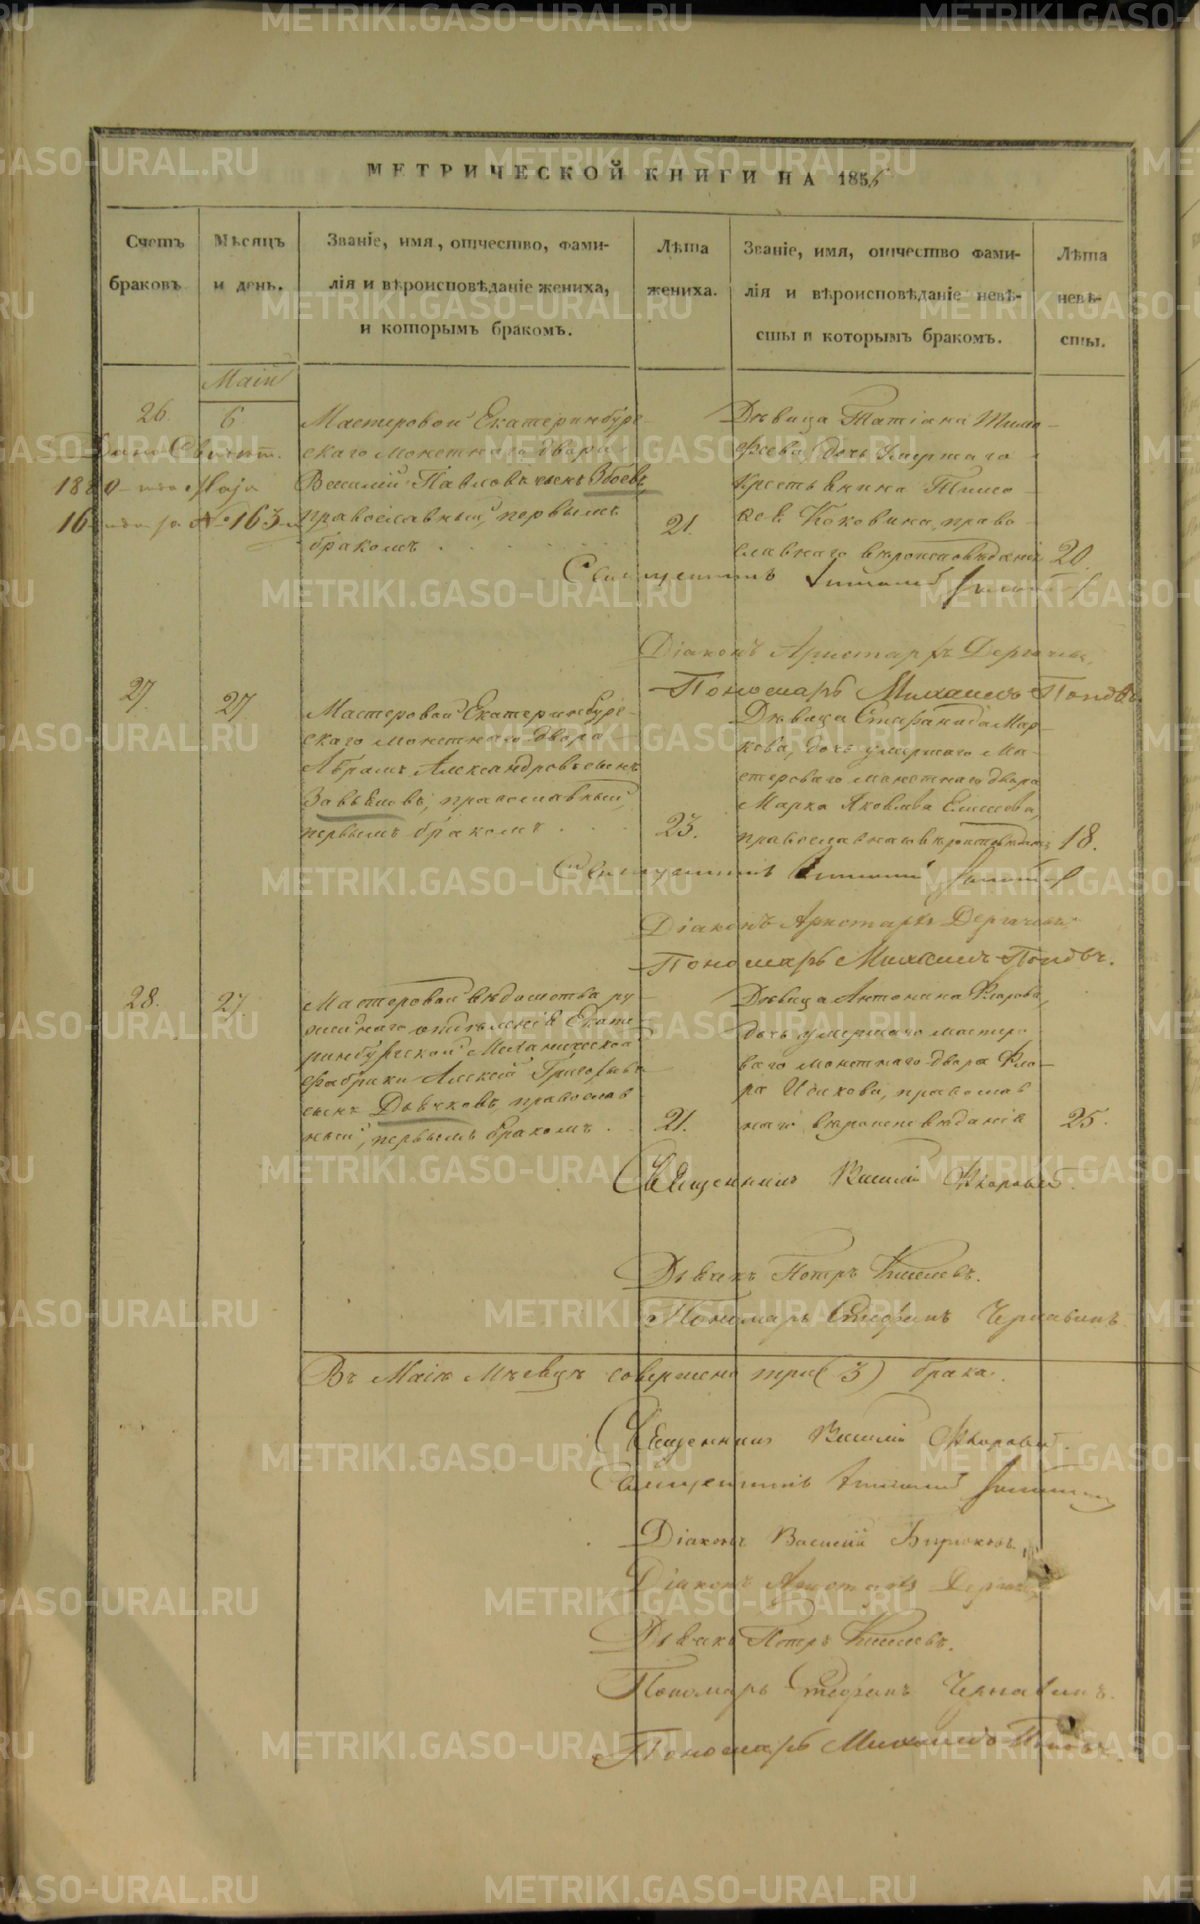 МЕТРИЧЕСКОЙ КНИГИ НА 1856
Счетъ браковъ.
Мѣсяцъ и день.
Званіе, имя, отчество, фами-
лія и вѣроисповѣданіе жениха,
и которымъ бракомъ.
Лѣта
жениха.
Званіе, имя, отчество фами-
лія и вѣроисповѣданіе невѣ-
сты и которымъ бракомъ.
Лѣта
невѣ-
сты.
Маій
26.
6
Мастеровой Екатеринбург-
скаго монетнаго двора
Василій Павловъ сынъ Збоевъ,
православный, первымъ
бракомъ.
21.
Дѣвица Татіана Тимо-
феева, дочь умершаго
крестьянина Тимо-
фея Коковина, право-
славнаго вѣроисповѣданія
20.
Дано Свидѣт.
1880 Маія
16 за № 163
Священникъ
Діаконъ Аристархъ Дергачевъ.
Пономарь Михаилъ Поповъ.
27.
27.
Мастеровой Екатеринбург-
скаго монетнаго двора
Абрамъ Александровъ сынъ
Завьяловъ, православный,
первымъ бракомъ.
23.
Дѣвица Стефанида Мар-
кова, дочь умершаго ма-
стероваго монетнаго двора
Марка Яковлева
православнаго вѣроисповѣданія
18.
Священникъ
Діаконъ Аристархъ Дергачевъ.
Пономарь Михаилъ Поповъ.
28.
27.
Мастеровой вѣдомства ру
отдѣленія Екате-
ринбургской Механической
фабрики Алексѣй Григорьевъ
сынъ Дьячковъ, православ
ный, первымъ бракомъ.
21.
Дѣвица Антонина Флорова,
дочь умершаго мастеро
ваго монетнаго двора Фло-
ра Исакова, православ
наго вѣроисповѣданія
25.
Священникъ Василій
Дьячекъ Петръ Киселевъ.
Пономарь Стефанъ Чернавинъ.
Въ Маіѣ Мѣсяцѣ совершено три (3) брака.
Священникъ Василій
Священникъ
Діаконъ Василій Бирюковъ.
Діаконъ Аристархъ Дергачевъ
Дьячекъ Петръ Киселевъ.
Пономарь Стефанъ Чернавинъ.
Пономарь Михаилъ Поповъ.
METRIKI.GASO-URAL.RU